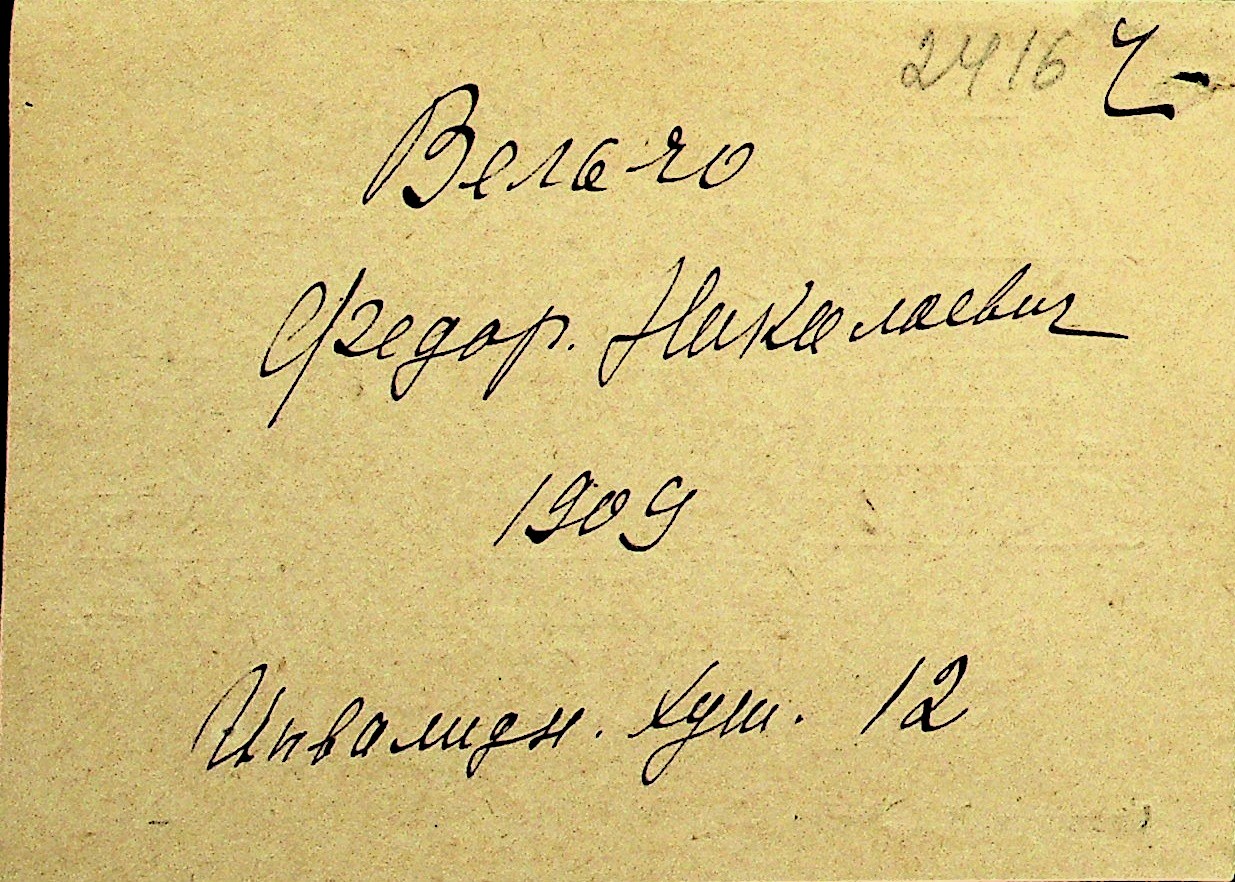 2416 ч-
Вельчо
Федор. Николаевич
1909
Инвалидн. хут. 12